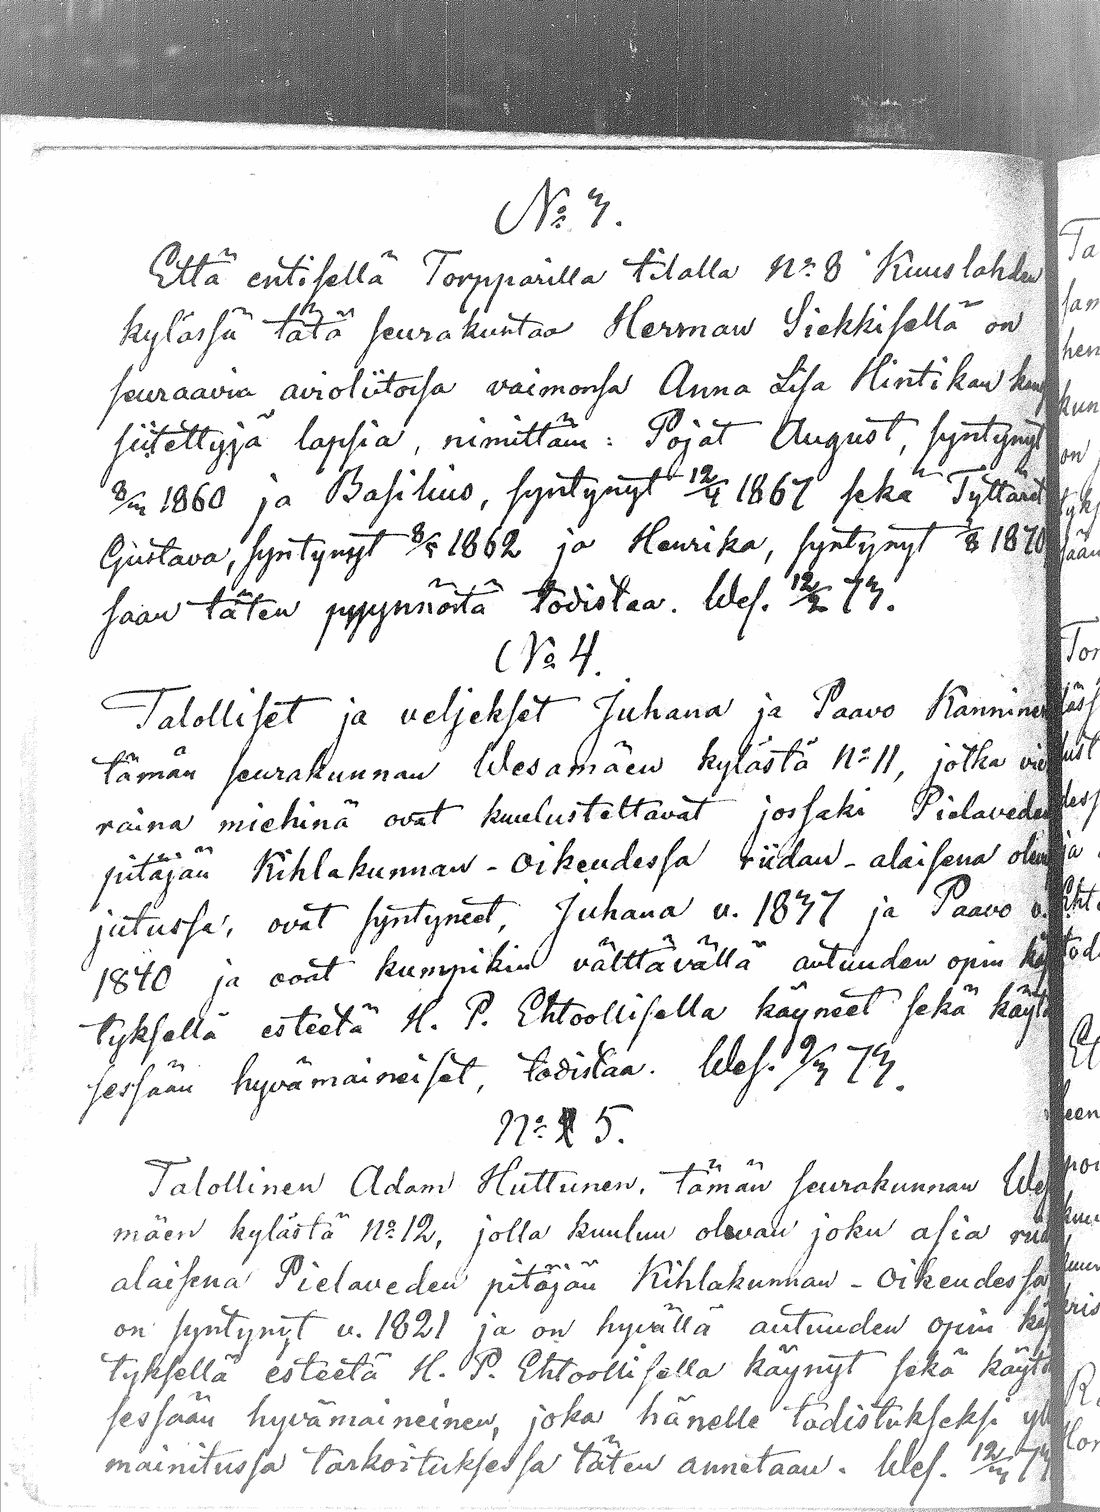 No 3.
Että entisellä Torpparilla tilalla No 8 Kuuslahden
kylässä tätä seurakuntaa Herman Siekkisellä on
seuraavia avioliitossa vaimonsa Anna Lisa Hintikan
siitettyjä lapsia, nimittäin: Pojat August, syntynyt
1860 ja Basilius, syntynyt 12/4 1867 sekä Tyttäret
Gustava, syntynyt 8/5 1862 ja Henrika, syntynyt 1870
saan täten pyynnöstä todistaa. Wes. 12/2 73.
No 4.
Talolliset ja veljekset Juhana ja Paavo Kanninen
tämän seurakunnan Wesamäen kylästä No 11, jotka vie
raina miehinä ovat kuulusteltavat jossaki Pielaveden
pitäjän Kihlakunnan-oikeudessa riidan-alaisena
jutussa, ovat syntyneet, Juhana v. 1837 ja Paavo v.
1840 ja ovat kumpikin välttävällä autuuden opin kä
tyksellä esteetä H. P. Ehtoollisella käyneet sekä käytö
sessään hyvämaineiset, todistaa. Wes. 9/3 73.
No 5.
Talollinen Adam Huttunen, tämän seurakunnan Wes
mäen kylästä No 12, jolla kuuluu olevan joku asia rii
alaisena Pielaveden pitäjän Kihlakunnan-oikeudessa
on syntynyt v. 1821 ja on hyvällä autuuden opin kä
tyksellä esteetä H. P. Ehtoollisella käynyt sekä käytö
sessään hyvämaineinen, joka hänelle todistukseksi yl
mainitussa tarkoituksessa täten annetaan. Wes. 12/3 73